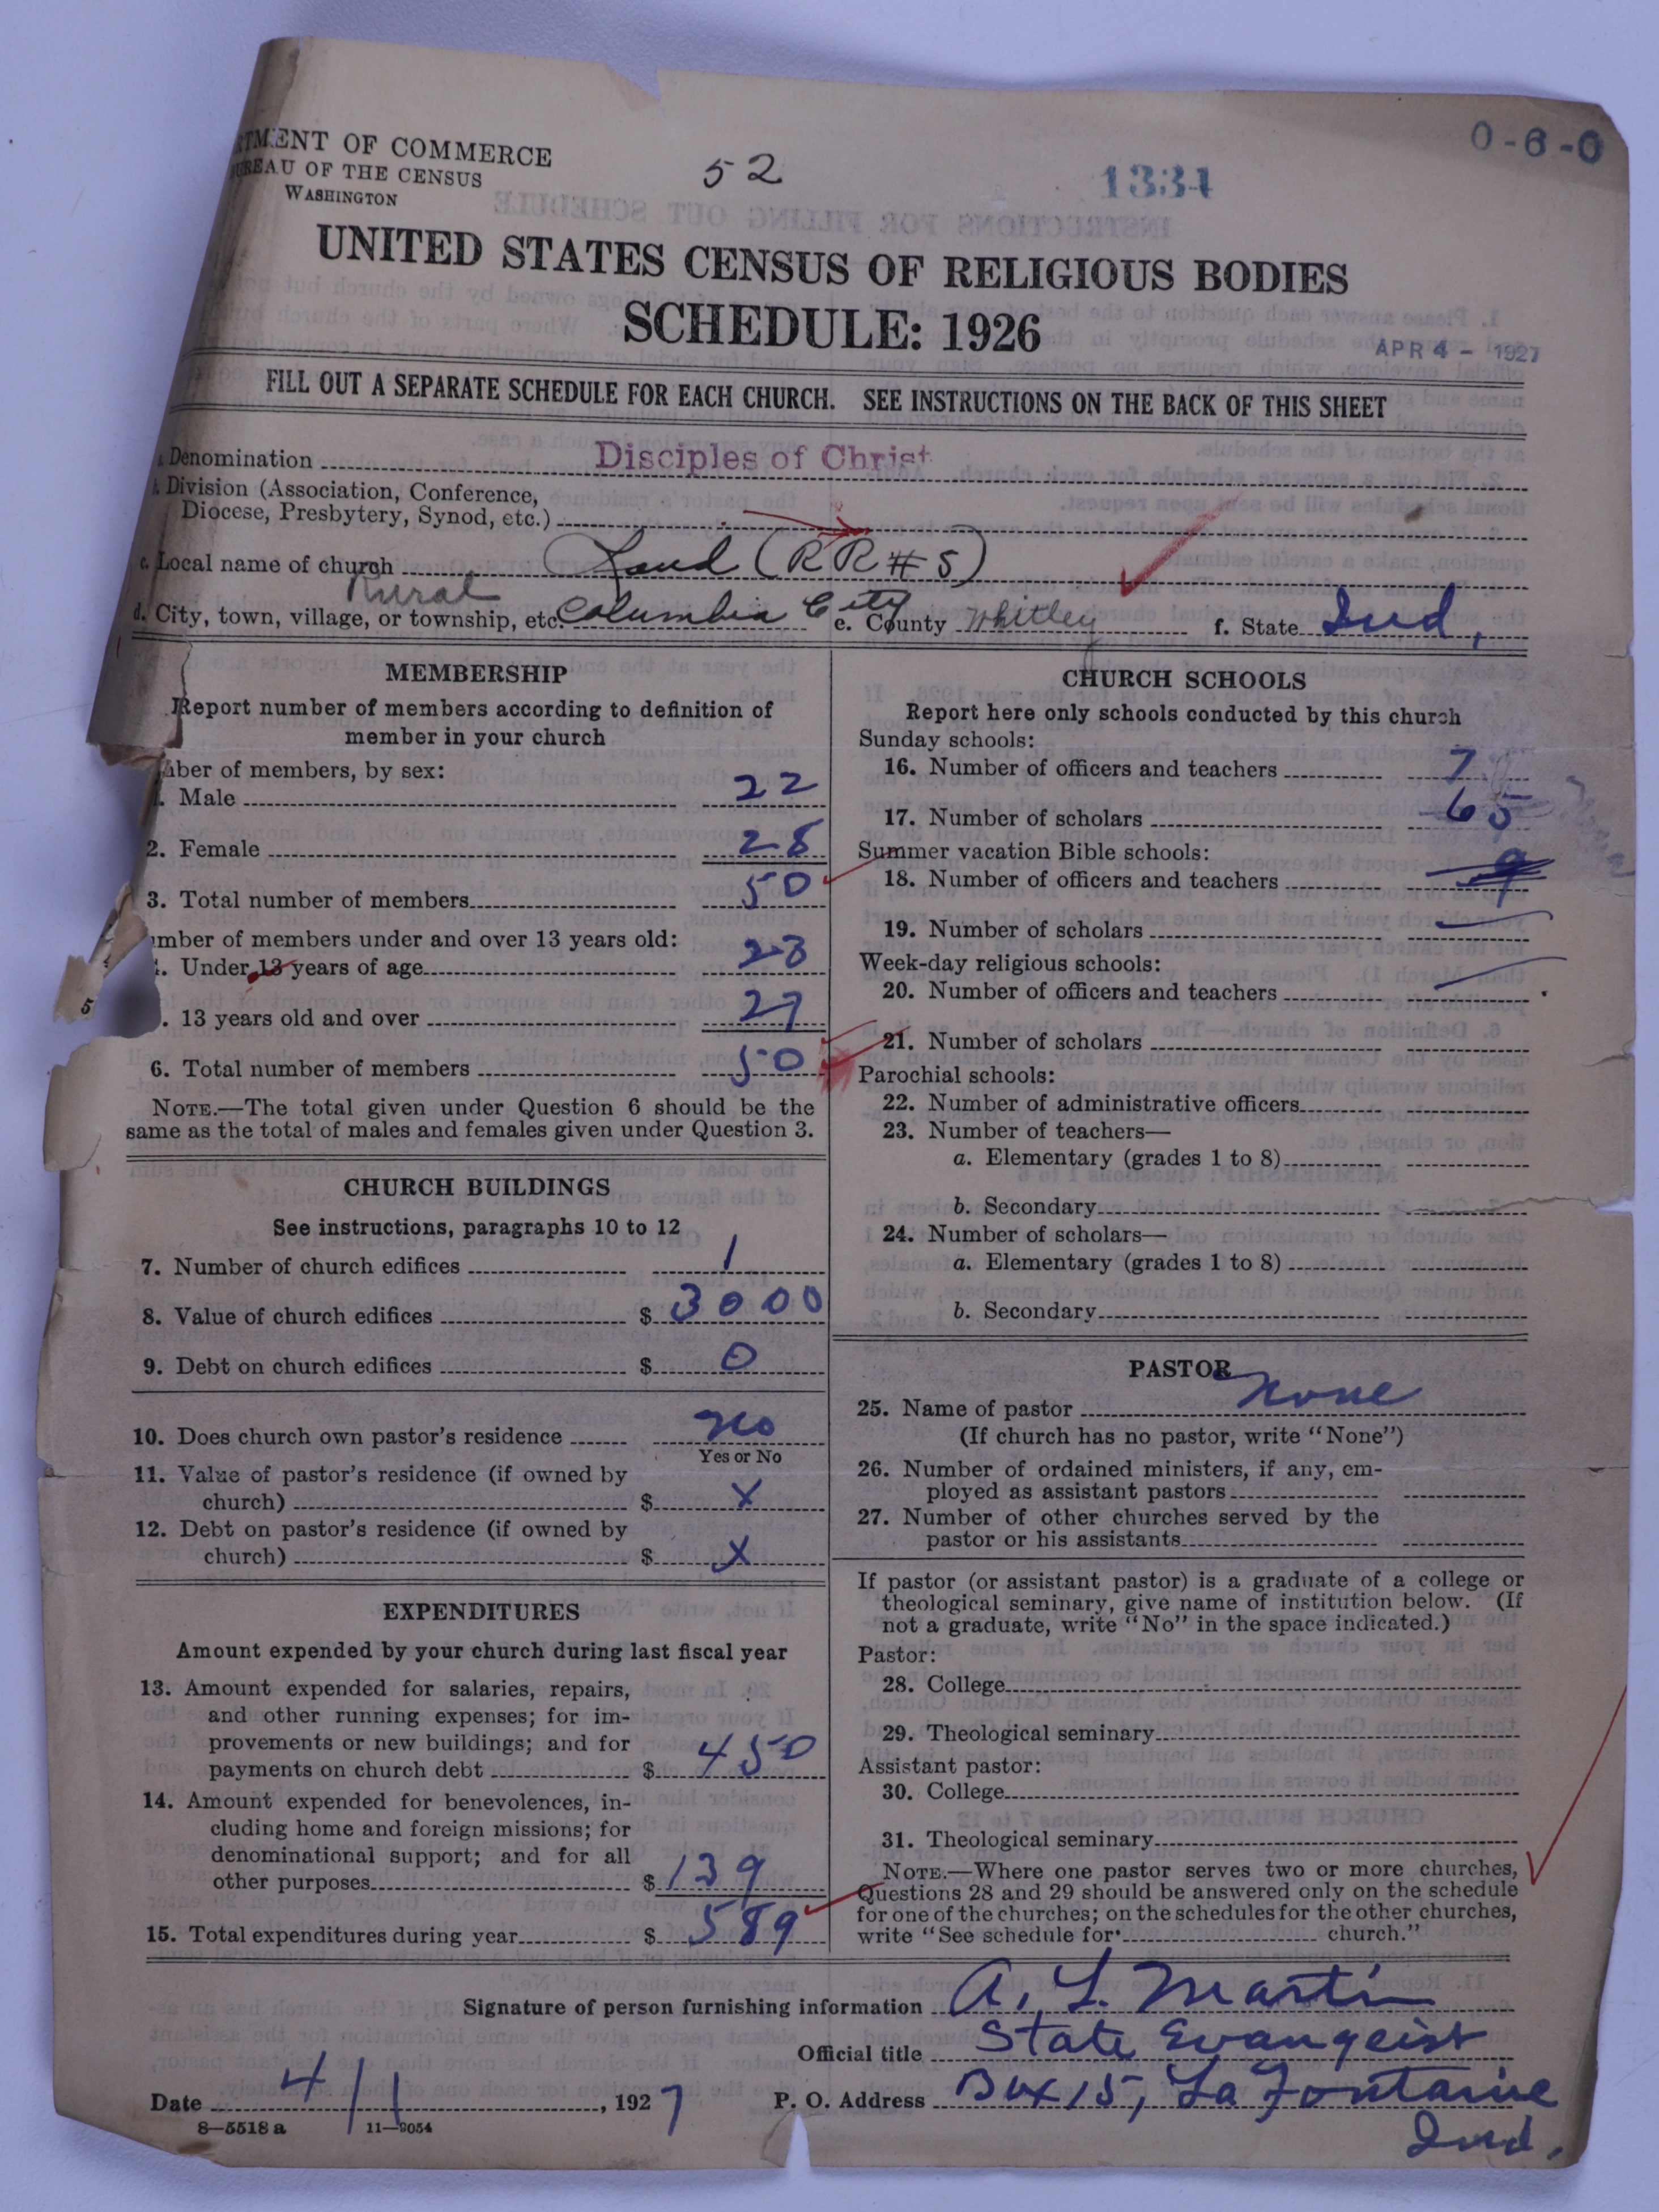 RTMENT OF COMMERCE
UREAU OF THE CENSUS
WASHINGTON
52
1334
0-6-0
UNITED STATES CENSUS OF RELIGIOUS BODIES
SCHEDULE: 1926
APR 4 - 1927
FILL OUT A SEPARATE SCHEDULE FOR EACH CHURCH. SEE INSTRUCTIONS ON THE BACK OF THIS SHEET
Denomination Disciples of Christ
Division (Association, Conference,
Diocese, Presbytery, Synod, etc.)
c. Local name of church (RR # 5)
Rural
d. City, town, village, or township, etc. Columbia City e. County Whitley f. State Ind.
MEMBERSHIP
Report number of members according to definition of
member in your church
ber of members, by sex:
Male 22
2. Female 28
3. Total number of members 50
mber of members under and over 13 years old:
Under 13 years of age 23
13 years old and over 27
5
6. Total number of members 50
NOTE.—The total given under Question 6 should be the
same as the total of males and females given under Question 3.
CHURCH BUILDINGS
See instructions, paragraphs 10 to 12
7. Number of church edifices 1
8. Value of church edifices $ 3000
9. Debt on church edifices $ 0
10. Does church own pastor's residence No
Yes or No
11. Value of pastor's residence (if owned by
church) $ X
12. Debt on pastor's residence (if owned by
church) $ X
EXPENDITURES
Amount expended by your church during last fiscal year
13. Amount expended for salaries, repairs,
and other running expenses; for im-
provements or new buildings; and for
payments on church debt $ 450
14. Amount expended for benevolences, in-
cluding home and foreign missions; for
denominational support; and for all
other purposes $ 139
15. Total expenditures during year $ 589
CHURCH SCHOOLS
Report here only schools conducted by this church
Sunday schools:
16. Number of officers and teachers 7
17. Number of scholars 65
Summer vacation Bible schools:
18. Number of officers and teachers 9
19. Number of scholars
Week-day religious schools:
20. Number of officers and teachers
21. Number of scholars
Parochial schools:
22. Number of administrative officers
23. Number of teachers—
a. Elementary (grades 1 to 8)
b. Secondary
24. Number of scholars—
a. Elementary (grades 1 to 8)
b. Secondary
PASTOR
25. Name of pastor None
(If church has no pastor, write "None")
26. Number of ordained ministers, if any, em-
ployed as assistant pastors
27. Number of other churches served by the
pastor or his assistants
If pastor (or assistant pastor) is a graduate of a college or
theological seminary, give name of institution below. (If
not a graduate, write "No" in the space indicated.)
Pastor:
28. College
29. Theological seminary
Assistant pastor:
30. College
31. Theological seminary
NOTE.—Where one pastor serves two or more churches,
Questions 28 and 29 should be answered only on the schedule
for one of the churches; on the schedules for the other churches,
write "See schedule for church."
Signature of person furnishing information A. L. Martin
Official title State Evangeist
Date 4/1, 1927 P. O. Address Box 15, La Fontaine
Ind.
8—5518 a 11—9054